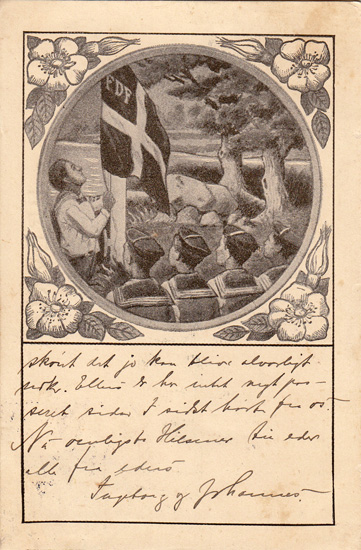 FDF
skönt det jo kan blive alvorligt
nok. Ellers er her intet nyt pas-
seret siden I sidst hørt fra os.
Nu venligste Hilsener til eder
alle fra eders
Ingeborg og Johannes.